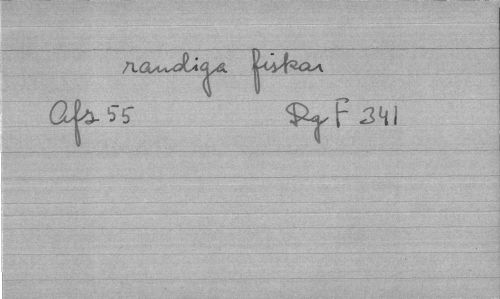 randiga fiskar
Afz 55 Rg F 341